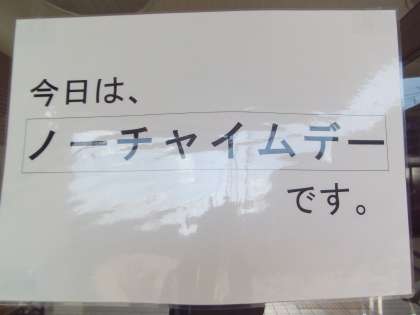 今日は、
ノーチャイムデー
です。